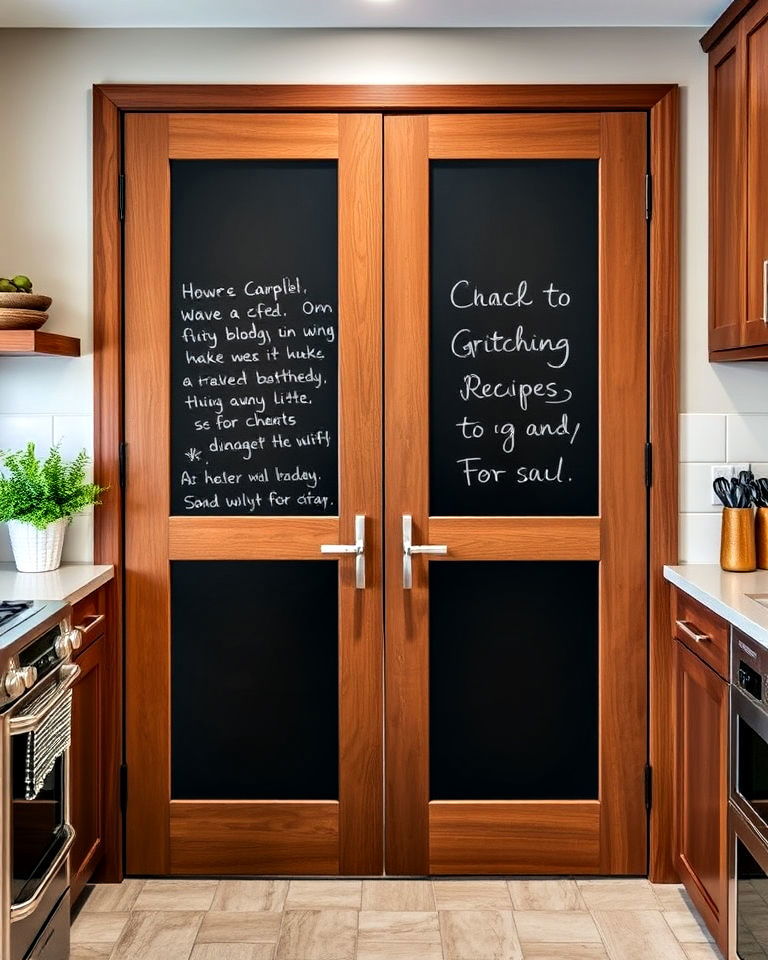 Howrs Carplel,
wave a cfed. Om
flity blodg, un wing
hake wes it huke
a traved botthedy,
thing awny litte,
se for chearts
dinaget the wift
As holer wil boaday.
Sand wilyt for atay.
Chack to
Gritching
Recipes
to ig and,
For saul.